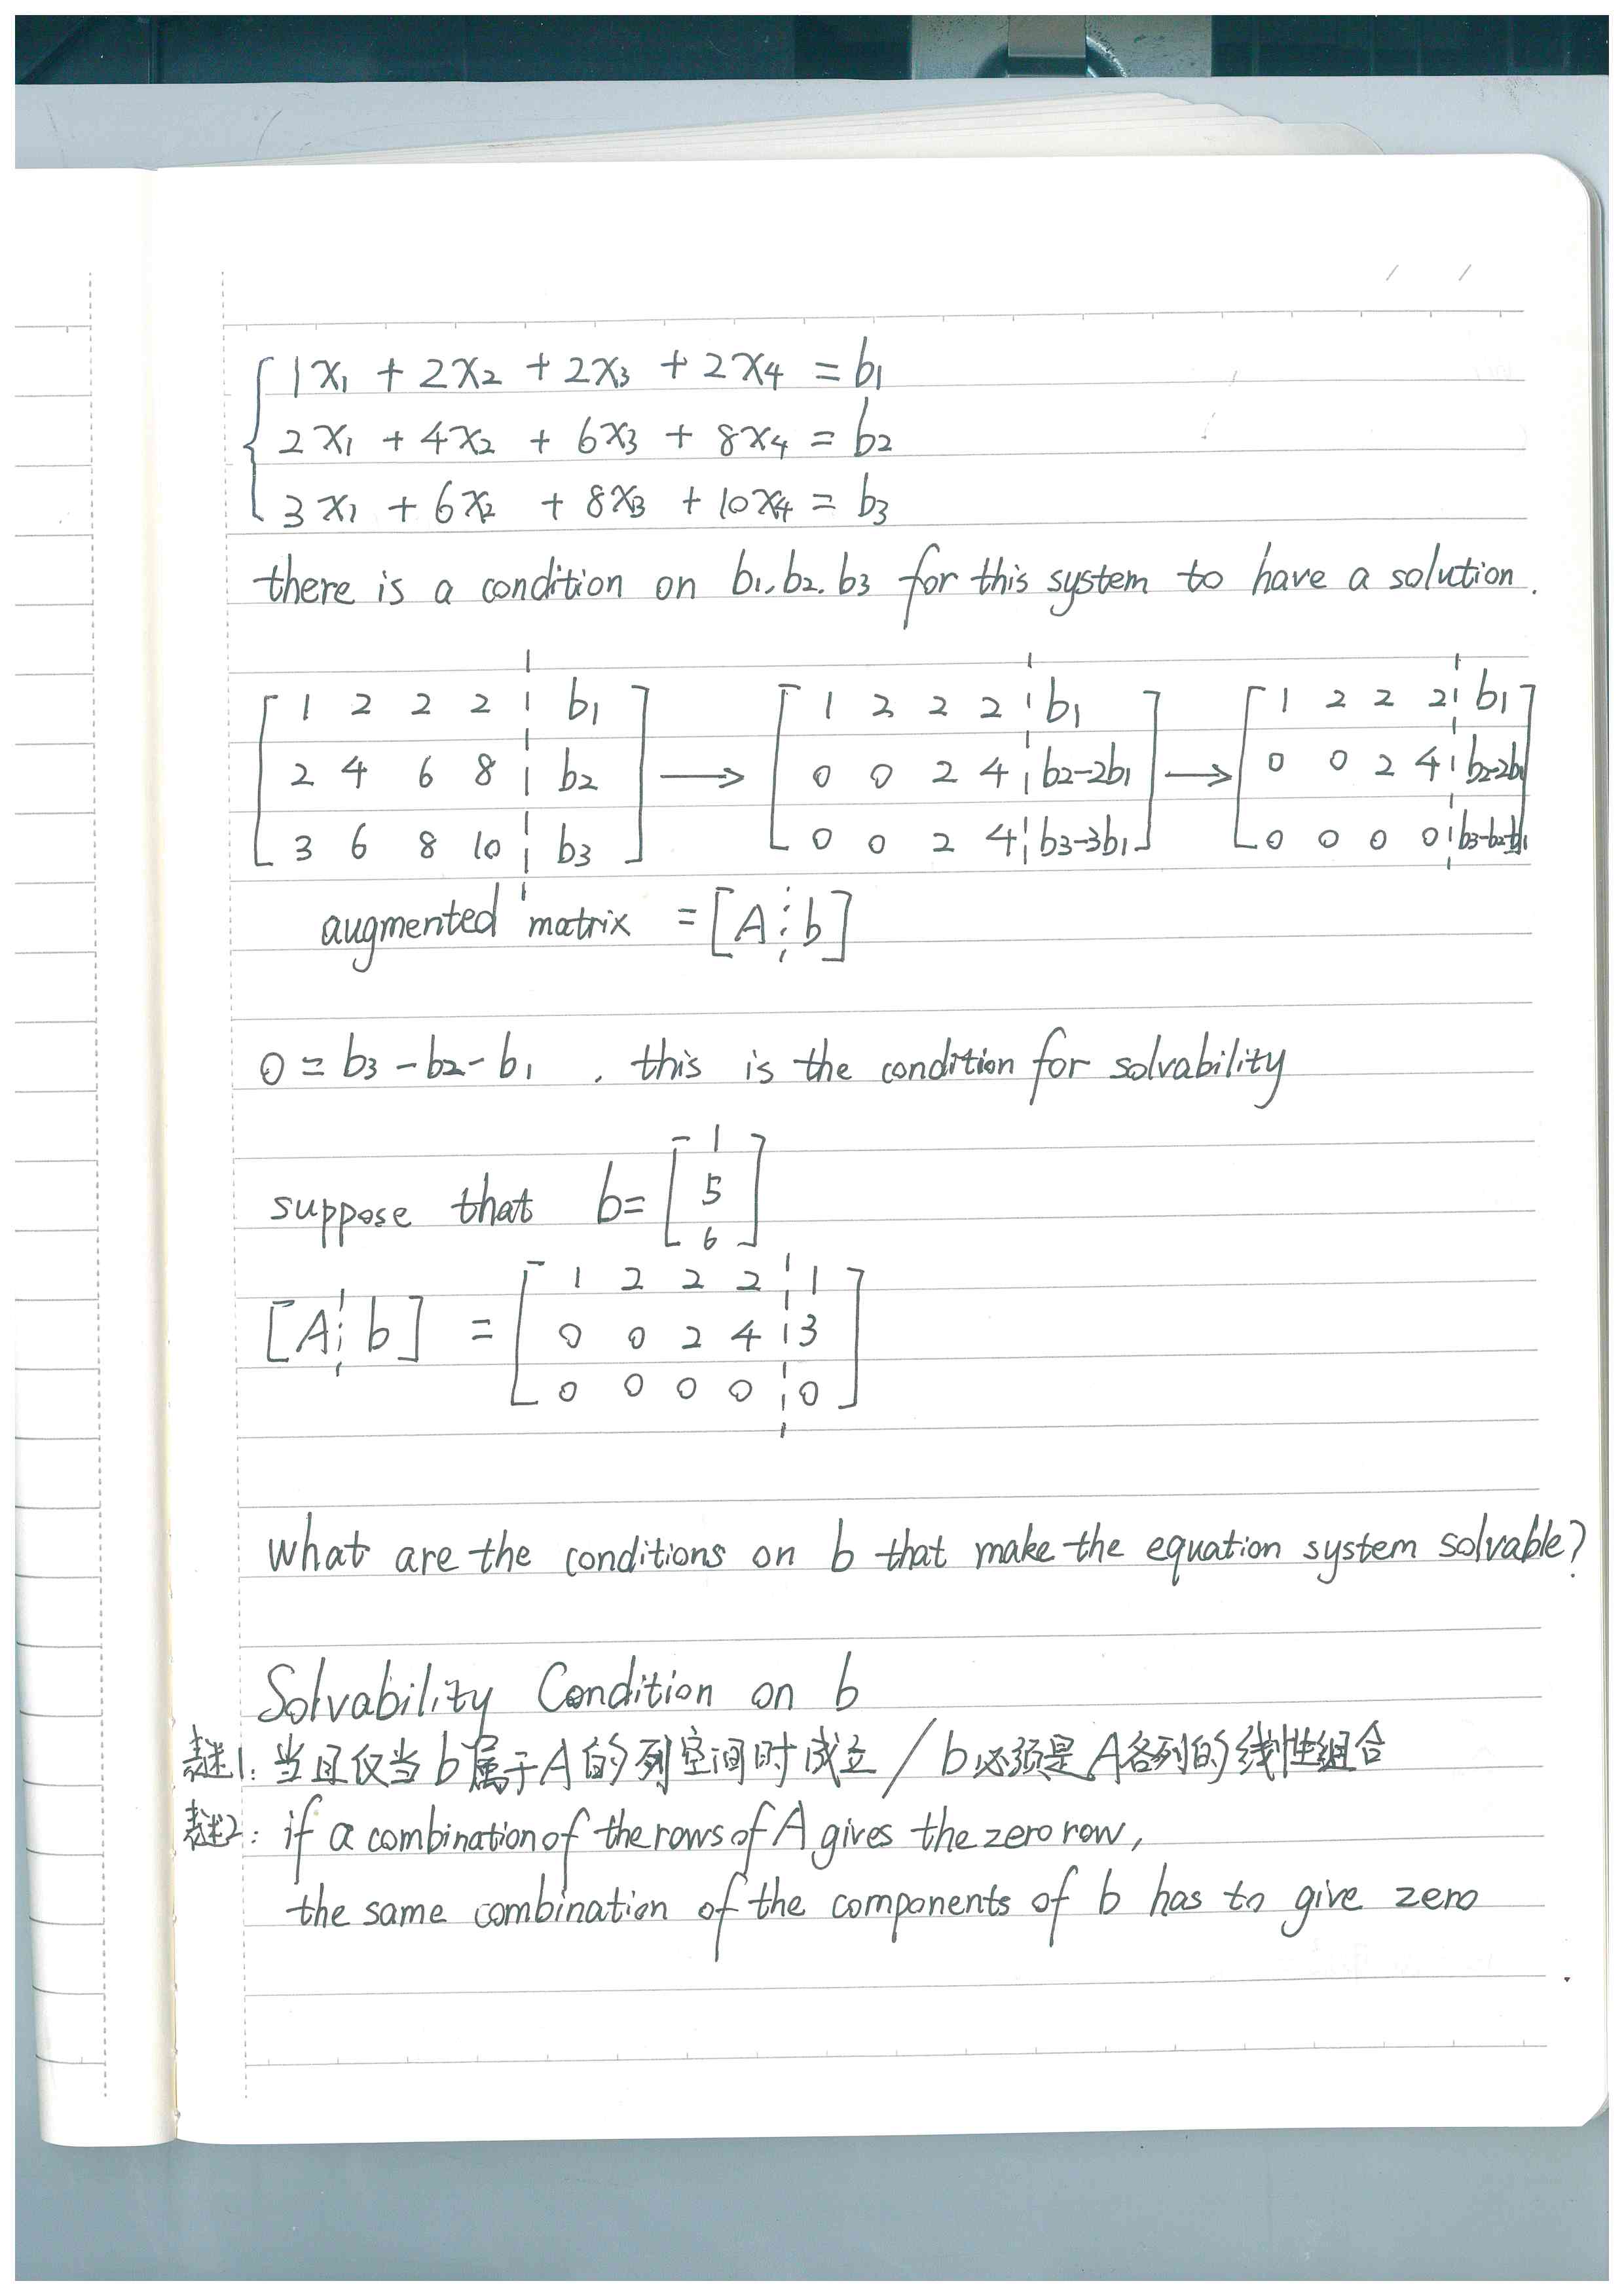 1x₁ + 2x₂ + 2x₃ + 2x₄ = b₁
2x₁ + 4x₂ + 6x₃ + 8x₄ = b₂
3x₁ + 6x₂ + 8x₃ + 10x₄ = b₃
there is a condition on b₁, b₂, b₃ for this system to have a solution.
[1 2 2 2 ¦ b₁] [1 2 2 2 ¦ b₁] [1 2 2 2 ¦ b₁]
[2 4 6 8 ¦ b₂] → [0 0 2 4 ¦ b₂-2b₁] → [0 0 2 4 ¦ b₂-2b₁]
[3 6 8 10 ¦ b₃] [0 0 2 4 ¦ b₃-3b₁] [0 0 0 0 ¦ b₃-b₂-b₁]
augmented matrix = [A ¦ b]
0 = b₃ - b₂ - b₁ . this is the condition for solvability
suppose that b = [1 5 6]
[1 2 2 2 ¦ 1]
[A ¦ b] = [0 0 2 4 ¦ 3]
[0 0 0 0 ¦ 0]
What are the conditions on b that make the equation system solvable?
Solvability Condition on b
表述1: 当且仅当b属于A的列空间时成立 / b必须是A各列的线性组合
表述2: if a combination of the rows of A gives the zero row,
the same combination of the components of b has to give zero